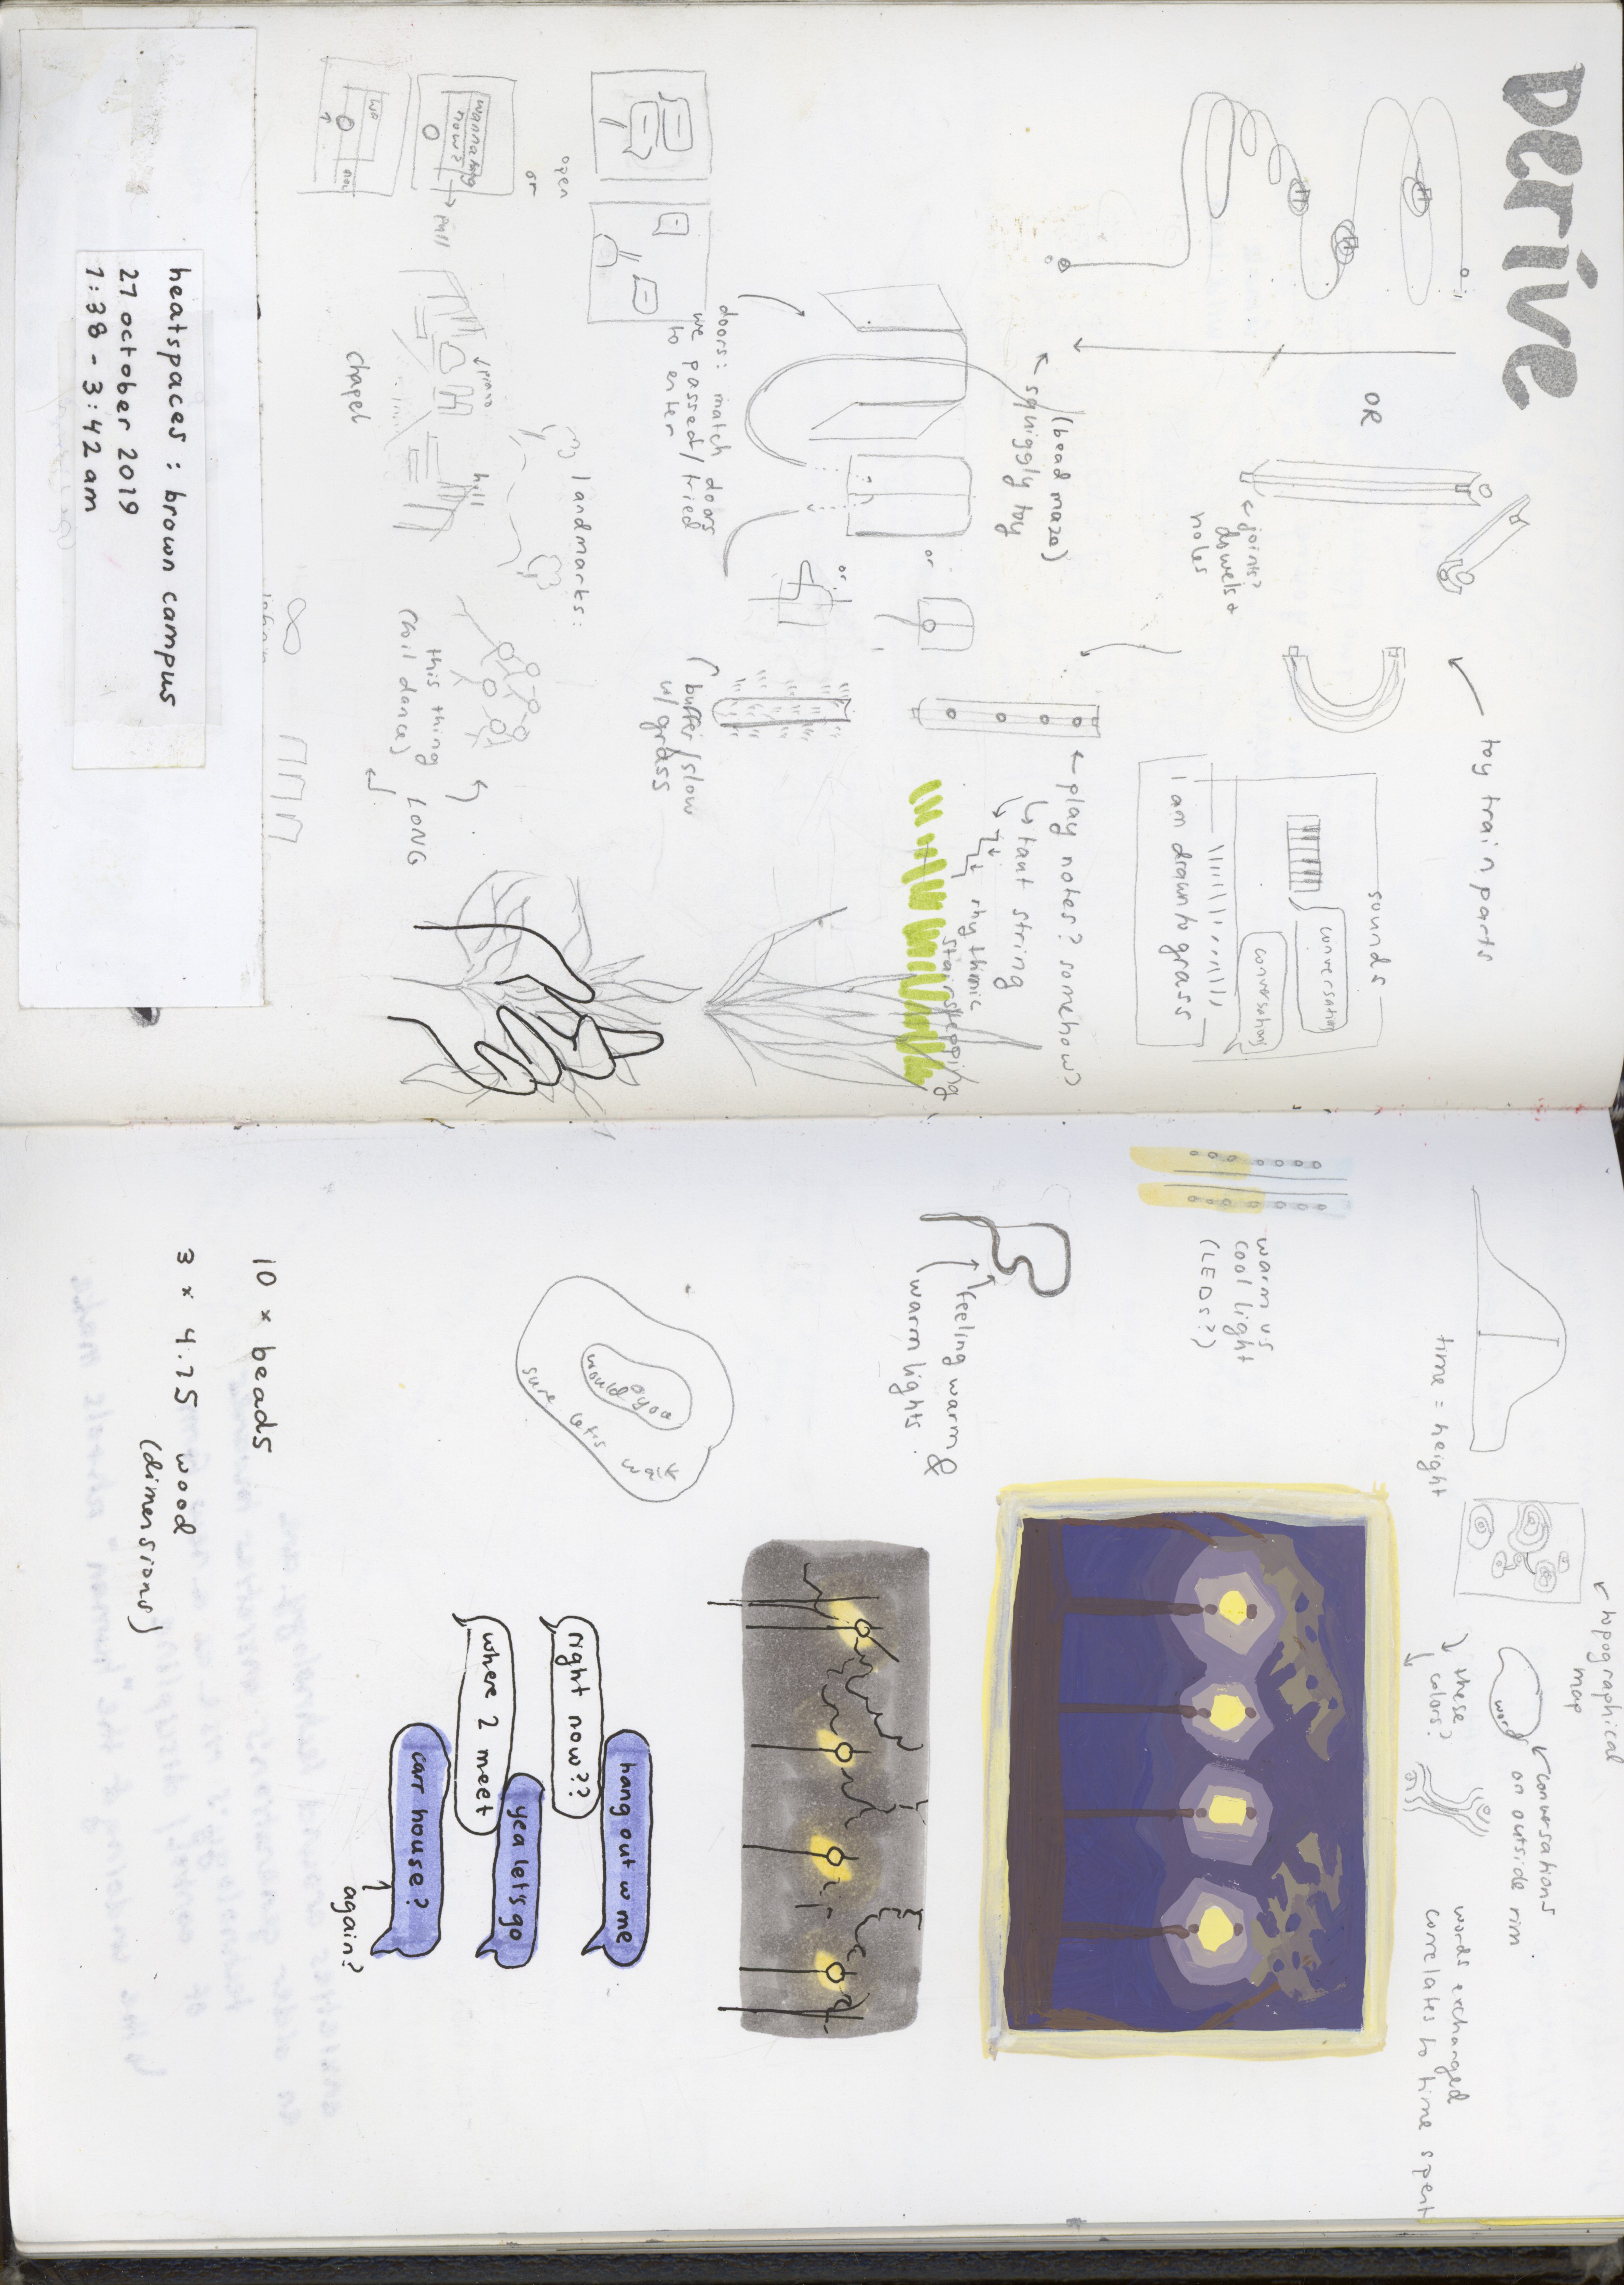 perive
OR
toy train parts
joints?
dowels +
holes
(bead maze)
squiggly toy
sounds
conversation
conversations
I am drawn to grass
doors: match doors
we passed/tried
to enter
or
or
play notes? somehow?
taut string
rhythmic
stairstepping
buffer/slow
w/grass
open
or
wannahang
now?
pull
wa
my landmarks:
piano
hill
chapel
this thing
(soil dance)
LONG
heatspaces : brown campus
27 october 2019
1:38 - 3:42 am
time = height
topographical
map
these
colors?
word
conversations
on outside rim
words exchanged
correlates to time spent
warm vs
cool light
(LEDs?)
feeling warm &
warm lights
would you
sure let's walk
hang out w me
right now??
yea let's go
where 2 meet
carr house?
again?
10 x beads
3 x 4.75 wood
(dimensions)